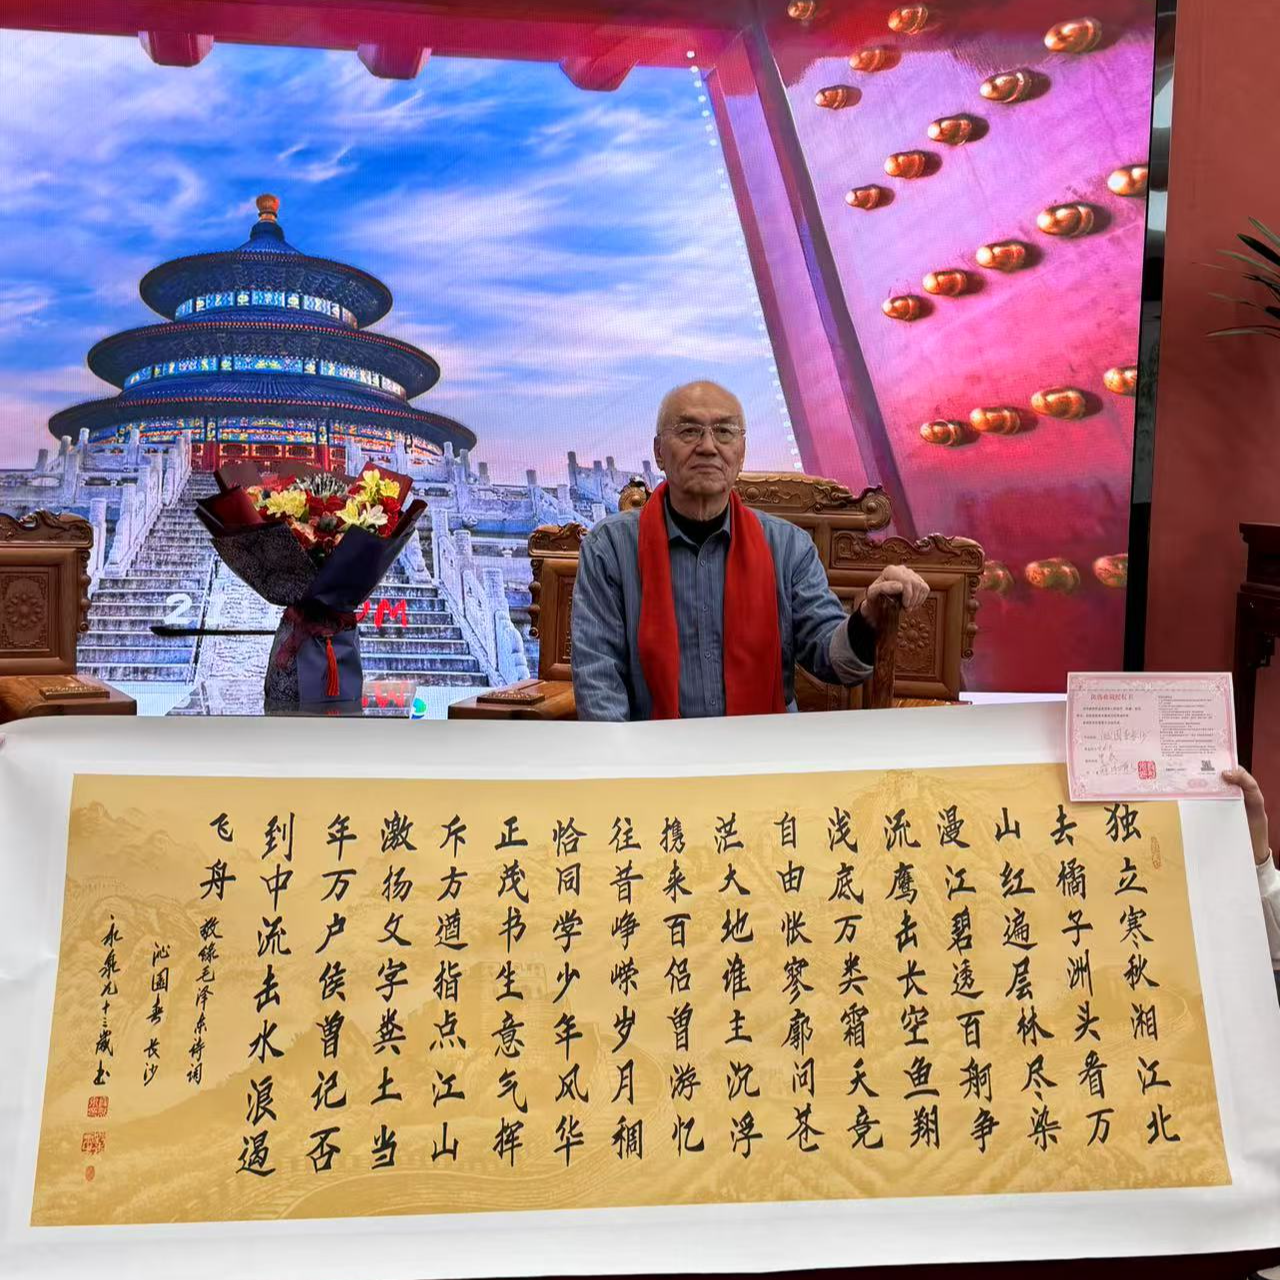 独立寒秋湘江北
去橘子洲头看万
山红遍层林尽染
漫江碧透百舸争
流鹰击长空鱼翔
浅底万类霜天竞
自由怅寥廓问苍
茫大地谁主沉浮
携来百侣曾游忆
往昔峥嵘岁月稠
恰同学少年风华
正茂书生意气挥
斥方遒指点江山
激扬文字粪土当
年万户侯曾记否
到中流击水浪遏
飞舟
敬録毛泽东诗词
沁園春 长沙
九十三歲书
沁園春长沙